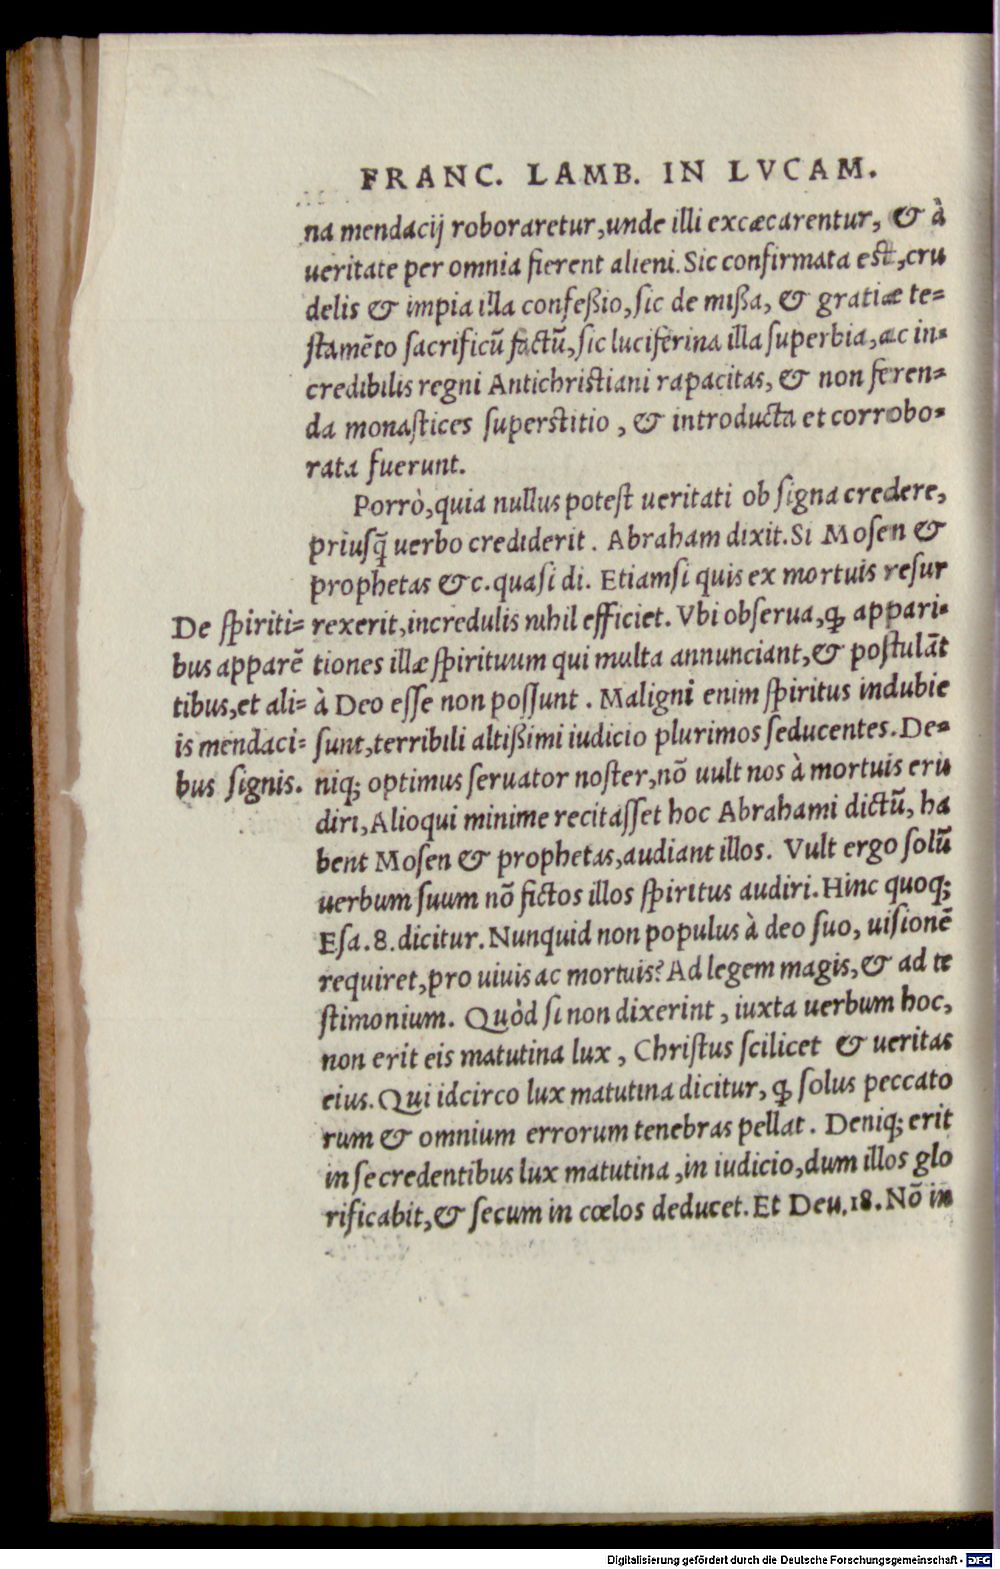 FRANC. LAMB. IN LVCAM.
na mendacij roboraretur, unde illi excæcarentur, & à
ueritate per omnia fierent alieni. Sic confirmata est, cru
delis & impia illa confeßio, sic de mißa, & gratiæ te=
ſtamẽto sacrificũ factũ, sic luciferina illa ſuperbia, ac in=
credibilis regni Antichriſtiani rapacitas, & non feren=
da monaſtices ſuperſtitio, & introducta et corrobo=
rata fuerunt.
Porrò, quia nullus poteſt ueritati ob ſigna credere,
priuſq̃ uerbo crediderit. Abraham dixit. Si Moſen &
prophetas &c. quaſi di. Etiamſi quis ex mortuis reſur
rexerit, incredulis nihil efficiet. Vbi obſerua, ꝙ appari=
tiones illæ ſpirituum qui multa annunciant, & poſtulãt
à Deo eſſe non poſſunt. Maligni enim ſpiritus indubie
ſunt, terribili altißimi iudicio plurimos ſeducentes. De=
niq; optimus ſeruator noſter, nõ uult nos à mortuis eru
diri, Alioqui minime recitaſſet hoc Abrahami dictũ, ha
bent Moſen & prophetas, audiant illos. Vult ergo ſolũ
uerbum ſuum nõ fictos illos ſpiritus audiri. Hinc quoq;
Eſa. 8. dicitur. Nunquid non populus à deo ſuo, uiſionẽ
requiret, pro uiuis ac mortuis? Ad legem magis, & ad te
ſtimonium. Quòd ſi non dixerint, iuxta uerbum hoc,
non erit eis matutina lux, Chriſtus ſcilicet & ueritas
eius. Qui idcirco lux matutina dicitur, ꝙ ſolus peccato
rum & omnium errorum tenebras pellat. Deniq; erit
in ſe credentibus lux matutina, in iudicio, dum illos glo
rificabit, & ſecum in cœlos deducet. Et Deu. 18. Nõ in
De ſpiriti=
bus apparẽ
tibus, et ali=
is mendaci=
bus ſignis.
Digitalisierung gefördert durch die Deutsche Forschungsgemeinschaft - DFG